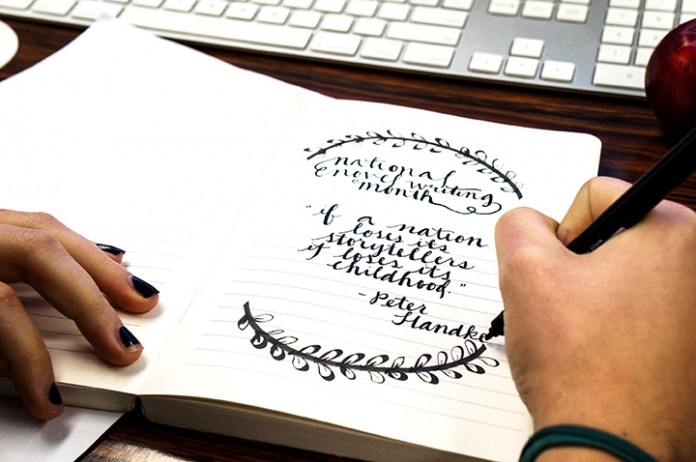 national
novel writing
month
"if a nation
loses its
storytellers
it loses its
childhood."
-Peter
Handke